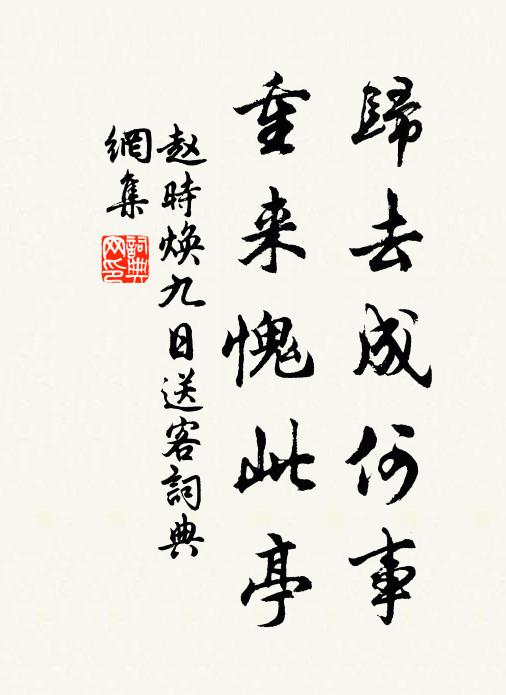 歸去成何事
重来愧此亭
赵時焕九日送客詞典
網集
詞典
网印